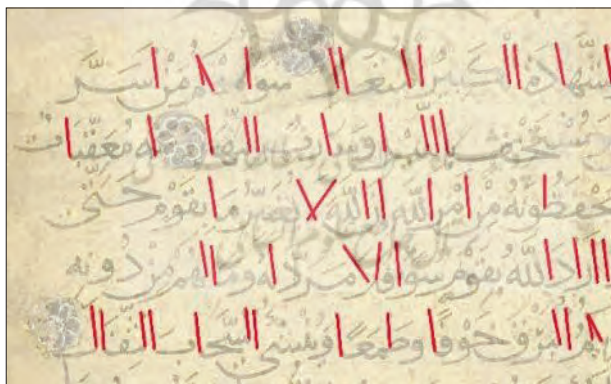 الشَّهَادَةِ الْكَبِيرُ الْمُتَعَالِ سَوَاءٌ مِنْكُمْ مَنْ أَسَرَّ
مُسْتَخْفٍ بِاللَّيْلِ وَسَارِبٌ بِالنَّهَارِ لَهُ مُعَقِّبَاتٌ
يَحْفَظُونَهُ مِنْ أَمْرِ اللَّهِ إِنَّ اللَّهَ لَا يُغَيِّرُ مَا بِقَوْمٍ حَتَّى
أَرَادَ اللَّهُ بِقَوْمٍ سُوءًا فَلَا مَرَدَّ لَهُ وَمَا لَهُمْ مِنْ دُونِهِ
يُرِيكُمُ الْبَرْقَ خَوْفًا وَطَمَعًا وَيُنْشِئُ السَّحَابَ الثِّقَالَ